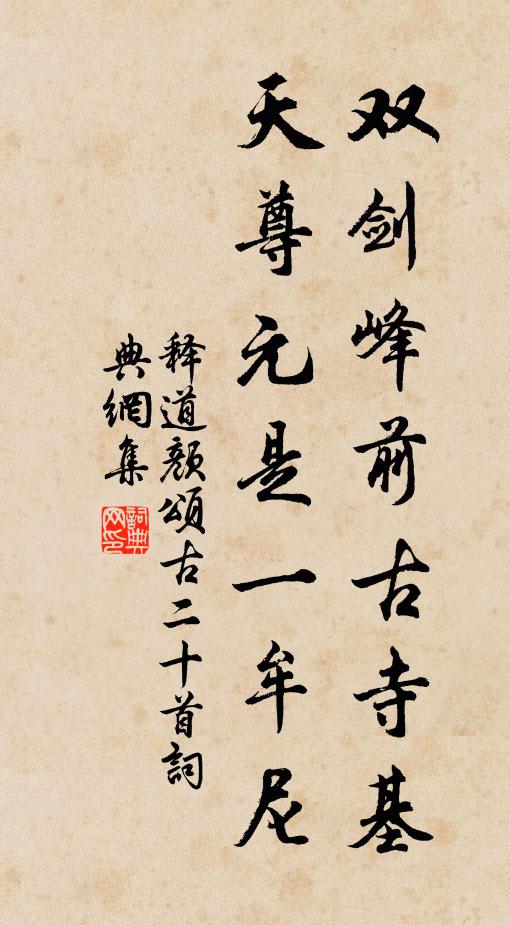 双剑峰前古寺基
天尊元是一牟尼
释道颜颂古二十首詞
典網集
詞典网印